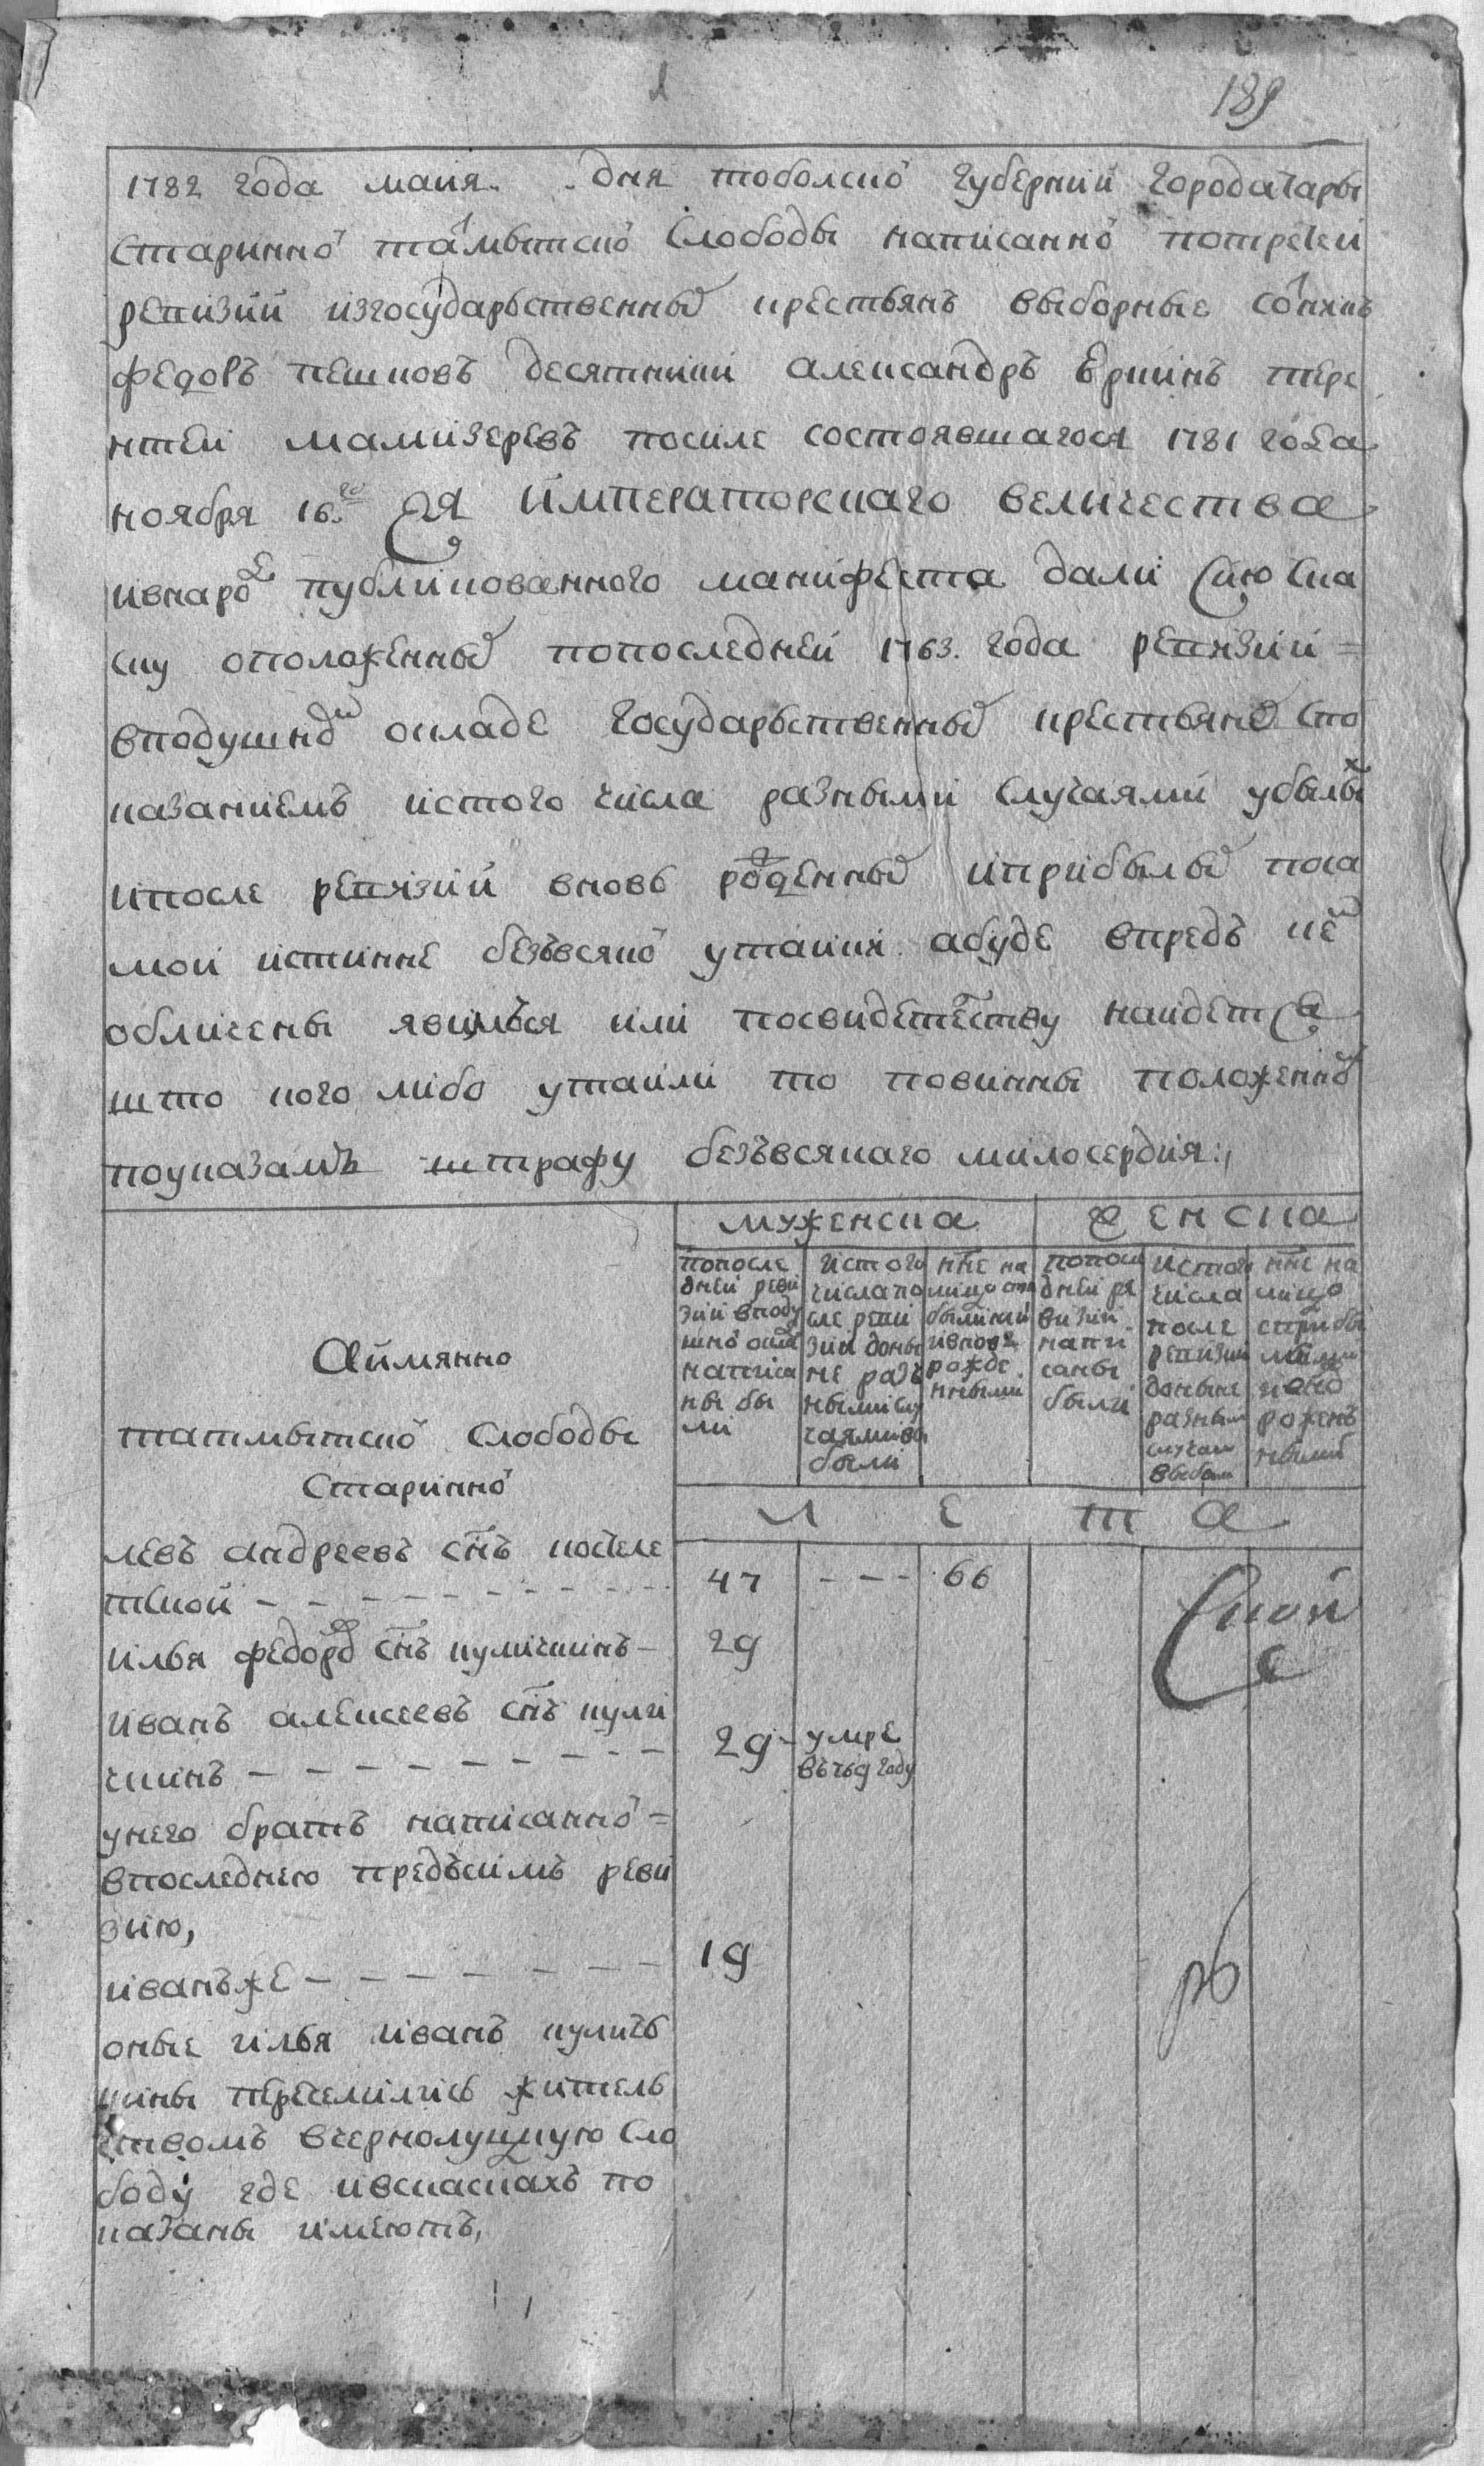 189
1782 года маия. .дня тоболско губернии города тары
старинно татмытско слободы написанно потретей
ревизии изгосударьственных крестьянъ выборные
федоръ пешковъ десятники александръ еркинъ тере
нтеи мамизеревъ посиле состоявшагося 1781 года
ноября 16го Ея императорскаго величества
ивнарод публикованного манифеста дали сию ска
ску оположенных попоследней 1763. года ревизии =
вподушной окладе государьственных крестьянех спо
казаниемъ истого числа разными случаями убылых
ипосле ревизии вновь рожденных иприбылых пока
мои истинне безъвсяко утаики абуде впредь кем
обличены явимъся или посвидетелству найдетса
што кого либо утаили то повинны положенному
поуказамъ штрафу безъвсякаго милосердия:,
мужеска женска
попосле дней реви зии вподу шно окладе написа ны бы ли
истого числапо сле реви зии доны не раз ными слу чаями вы были
нне на лицо спри былыми ивновь рожде нными
попосл дней ре визии напи саны были
истого числа после ревизии доныне разными случаи выбыли
нне на лицо сприбы лыми рожень ными
Аймянно
татмытско слободы
старинно
л е т а
левъ андреевъ снъ костеле
тъкой - - - - - - - - - 47 - - - 66
илья федоров снъ куличкинъ - 29
иванъ алексеевъ снъ кули
чкинъ - - - - - - - - 29 - умре въ769 году
унего братъ написанно =
впоследнею предъсимъ реви
зию,
иванъже - - - - - - - 19
оные илья иванъ куличь
кины переселились житель
ствомъ вчернолуцкую сло
боду где ивскаскахъ по
казаны имеютъ,